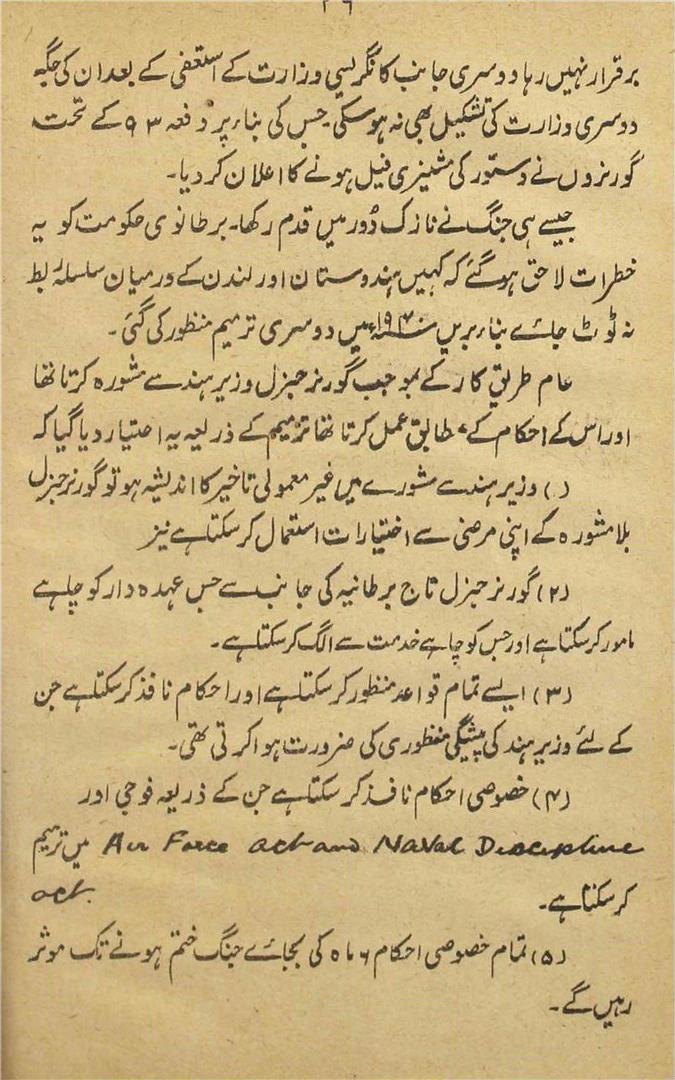 ۲۶
برقرار نہیں رہا دوسری جانب کانگریسی وزارت کے استعفی کے بعد ان کی جگہ
دوسری وزارت کی تشکیل بھی نہ ہوسکی۔ جس کی بناء پر دفعہ ۹۳ کے تحت
گورنروں نے دستور کی مشینری فیل ہونے کا اعلان کردیا۔
جیسے ہی جنگ نے نازک دَور میں قدم رکھا۔ برطانوی حکومت کو یہ
خطرات لاحق ہوگئے کہ کہیں ہندوستان اور لندن کے درمیان سلسلہ ربط
نہ ٹوٹ جائے بناء بریں ۱۹۴۰ء میں دوسری ترمیم منظور کی گئی۔
عام طریق کار کے بموجب گورنر جنرل وزیر ہند سے مشورہ کرتا تھا
اور اس کے احکام کے مطابق عمل کرتا تھا ترمیم کے ذریعہ یہ اختیار دیا گیا کہ
(۱) وزیر ہند سے مشورے میں غیر معمولی تاخیر کا اندیشہ ہو تو گورنر جنرل
بلا مشورہ کے اپنی مرضی سے اختیارات استعمال کرسکتا ہے نیز
(۲) گورنر جنرل تاج برطانیہ کی جانب سے جس عہدہ دار کو چاہے
مامور کرسکتا ہے اور جس کو چاہے خدمت سے الگ کرسکتا ہے۔
(۳) ایسے تمام قواعد منظور کرسکتا ہے اور احکام نافذ کرسکتا ہے جن
کے لئے وزیر ہند کی پیشگی منظوری کی ضرورت ہوا کرتی تھی۔
(۴) خصوصی احکام نافذ کرسکتا ہے جن کے ذریعہ فوجی اور
Air Force act and Naval Discipline میں ترمیم
act. کرسکتا ہے۔
(۵) تمام خصوصی احکام ۶ ماہ کی بجائے جنگ ختم ہونے تک موثر
رہیں گے۔